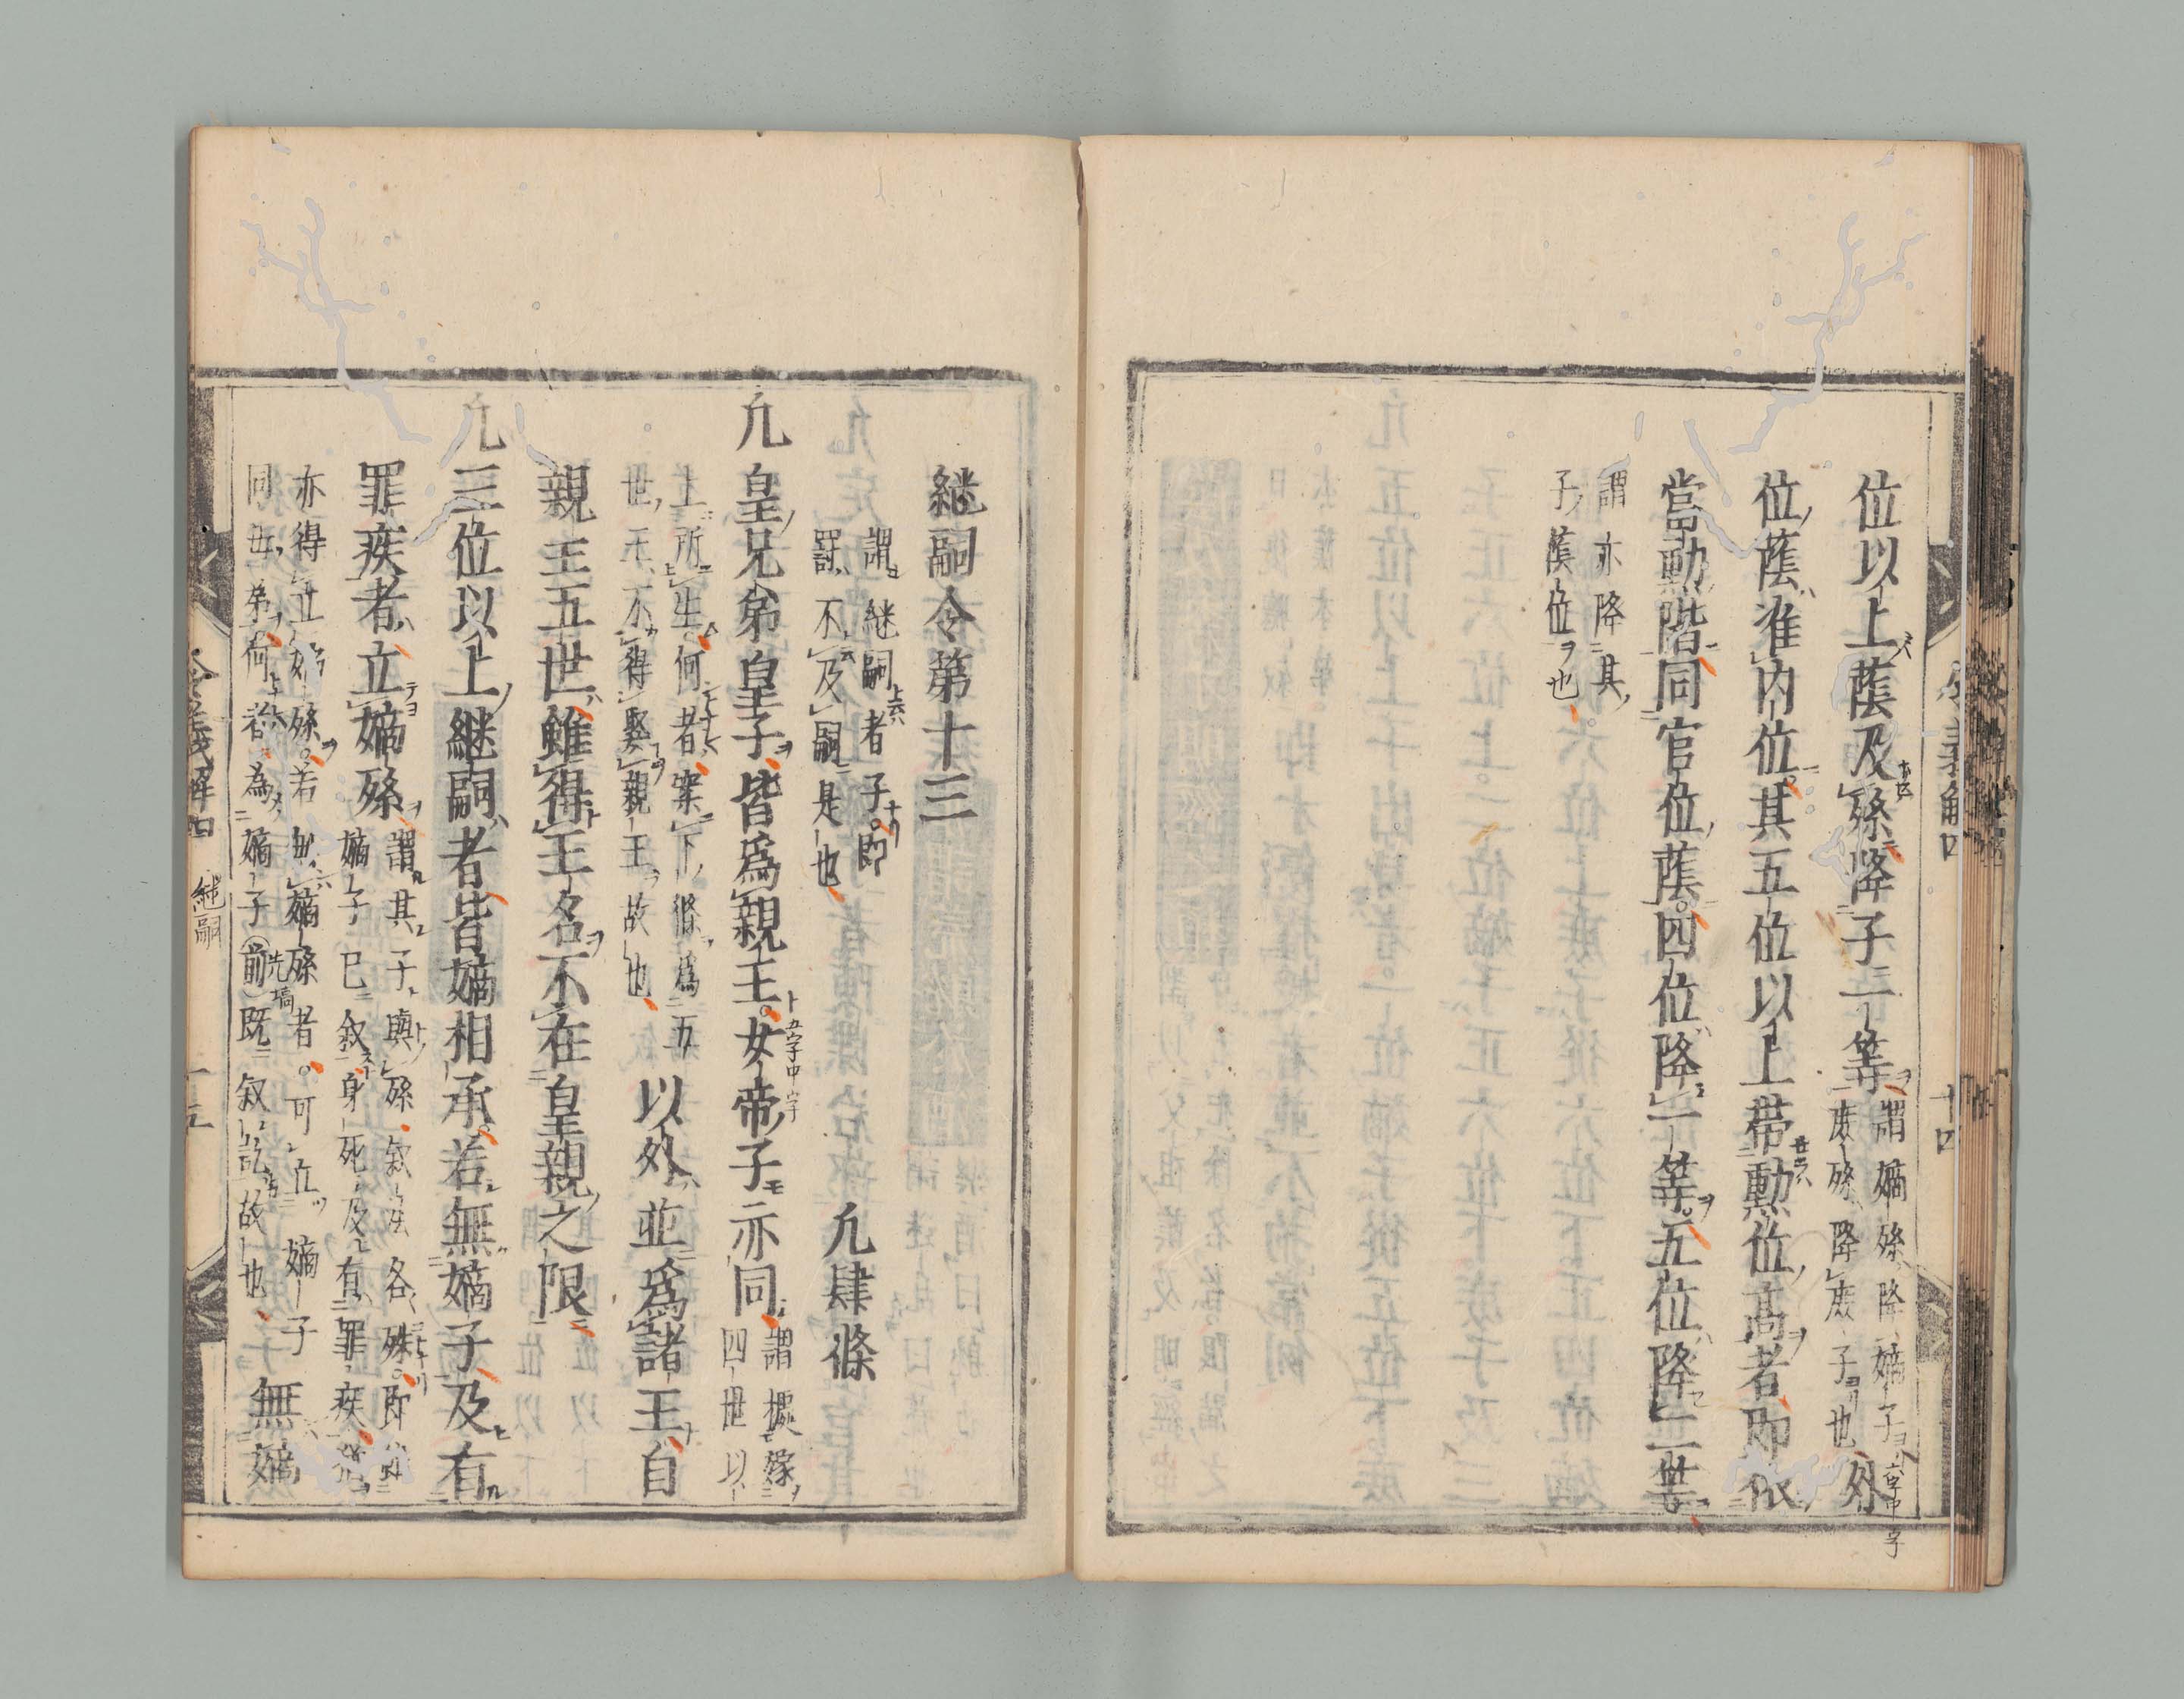 位以上蔭及孫降子一等
謂嫡孫降嫡子
庶孫降庶子也
外
位蔭准内位其五位以上帯勲位高者即依
當勲階同官位蔭四位降一等五位降二等
謂亦降其
子蔭位也
継嗣令第十三
謂継嗣者子即
不及嗣是也
凡肆條
凡皇兄弟皇子皆爲親王女帝子亦同
謂據嫁
四世以
上所生何者案下條爲五
世王不得娶親王故也
以外並爲諸王自
親王五世雖得王名不在皇親之限
凡三位以上継嗣者皆嫡相承若無嫡子及有
罪疾者立嫡孫
謂其子與孫叙法各殊即
嫡子已叙身死及有罪疾
亦得立嫡孫若無嫡孫者可立嫡子
同母弟何者為嫡子前既叙訖故也
無嫡
令義解四
継嗣
十五
十四